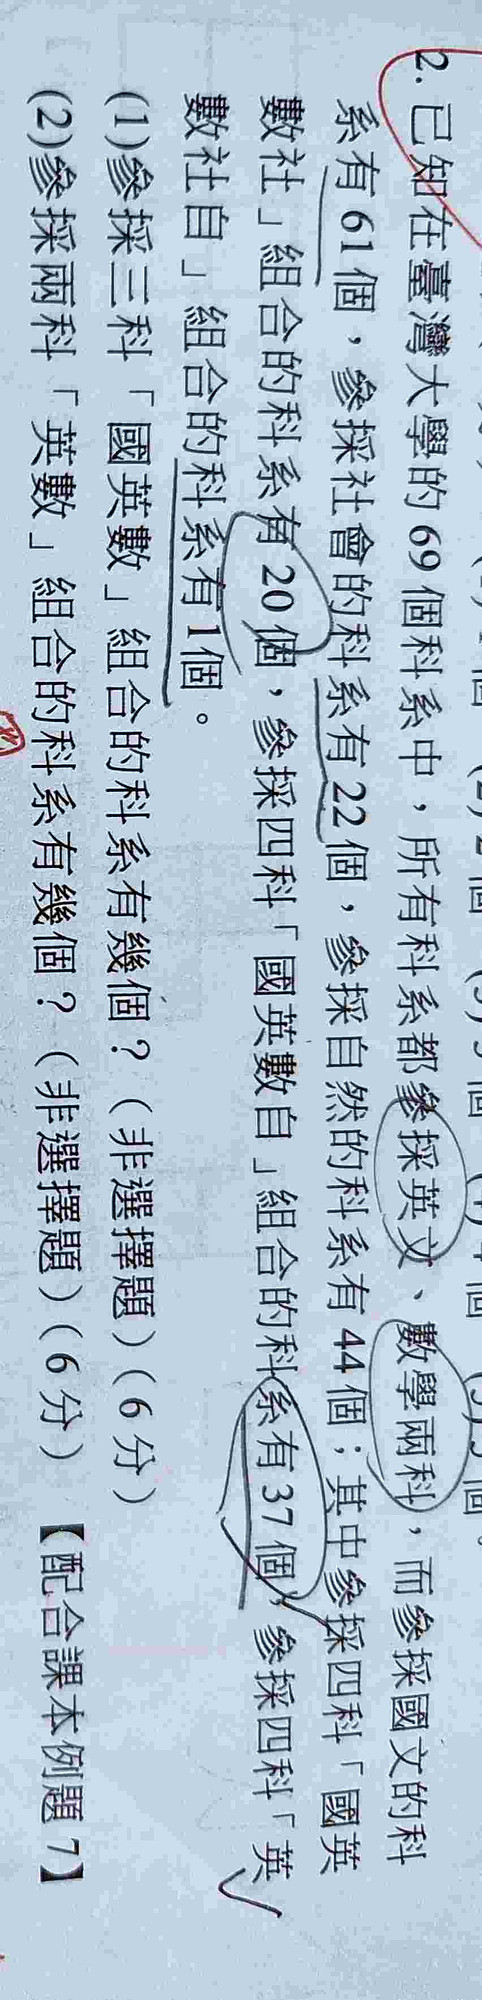 2. 已知在臺灣大學的 69 個科系中，所有科系都參採英文、數學兩科，而參採國文的科
系有 61 個，參採社會的科系有 22 個，參採自然的科系有 44 個；其中參採四科「國英
數社」組合的科系有 20 個，參採四科「國英數自」組合的科系有 37 個，參採四科「英
數社自」組合的科系有 1 個。
(1)參採三科「國英數」組合的科系有幾個？（非選擇題）（6 分）
(2)參採兩科「英數」組合的科系有幾個？（非選擇題）（6 分）【配合課本例題 7】